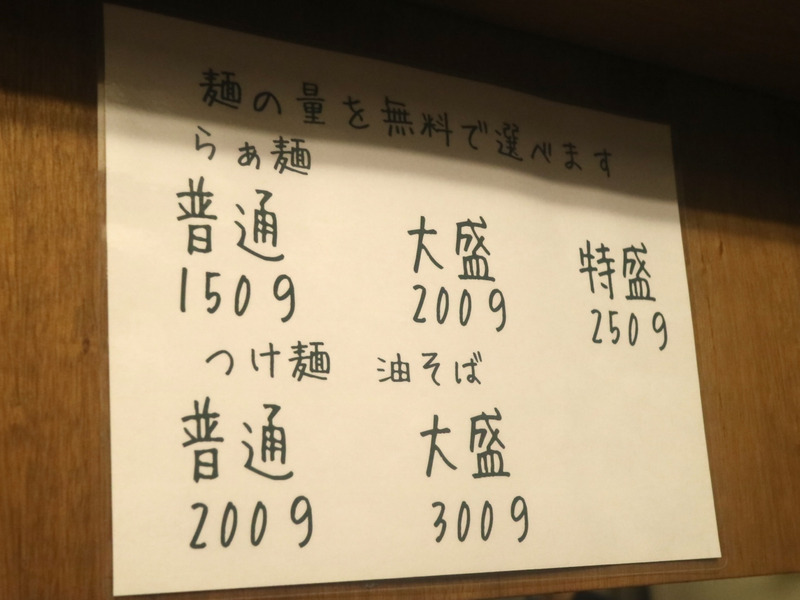 麺の量を無料で選べます
らぁ麺
普通 大盛 特盛
150g 200g 250g
つけ麺 油そば
普通 大盛
200g 300g